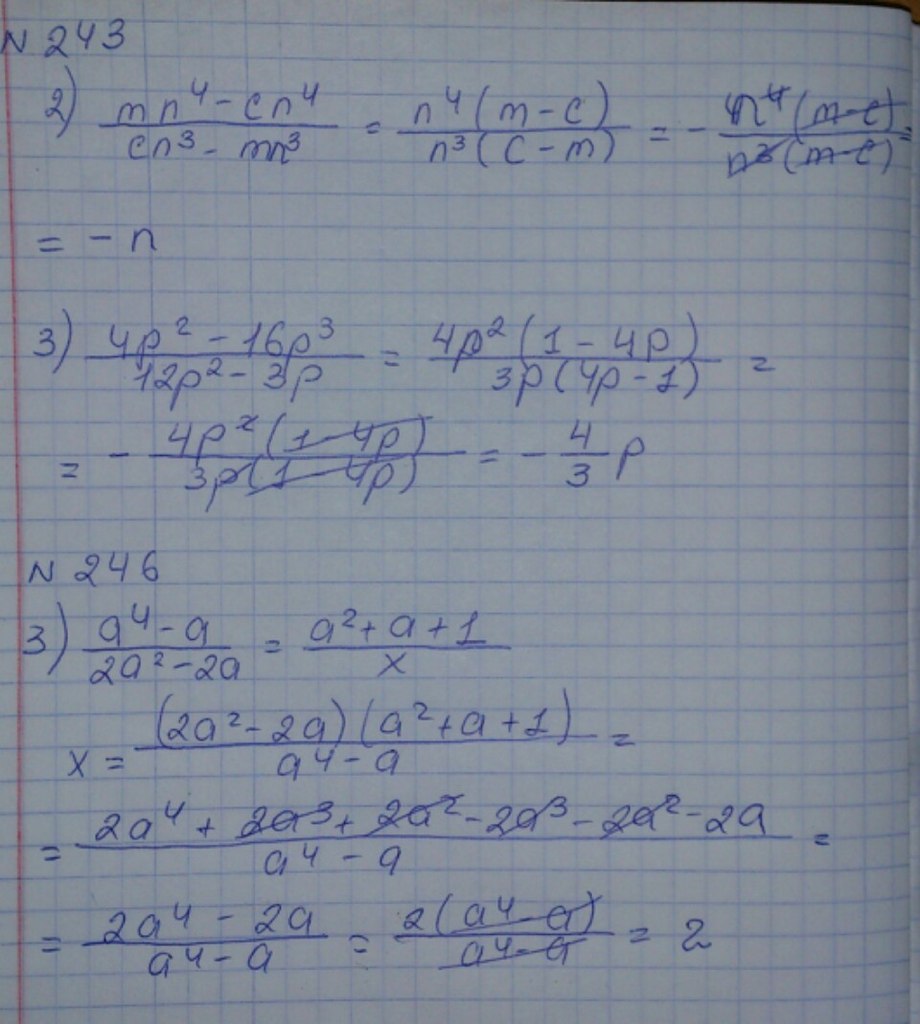 N 243
2) (mn⁴ - cn⁴)/(cn³ - mn³) = n⁴(m - c)/n³(c - m) = - n⁴(m - c)/n³(m - c) =
= - n
3) (4p² - 16p³)/(12p² - 3p) = 4p²(1 - 4p)/3p(4p - 1) =
= - 4p²(1 - 4p)/3p(1 - 4p) = - 4/3 p
N 246
3) (a⁴ - a)/(2a² - 2a) = (a² + a + 1)/x
x = (2a² - 2a)(a² + a + 1)/(a⁴ - a) =
= (2a⁴ + 2a³ + 2a² - 2a³ - 2a² - 2a)/(a⁴ - a) =
= (2a⁴ - 2a)/(a⁴ - a) = 2(a⁴ - a)/(a⁴ - a) = 2